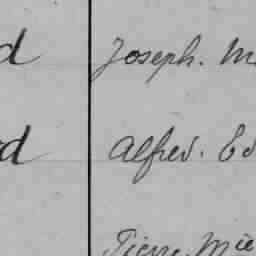 d Joseph. M
d Alfred. Ed
Pierre. Mie